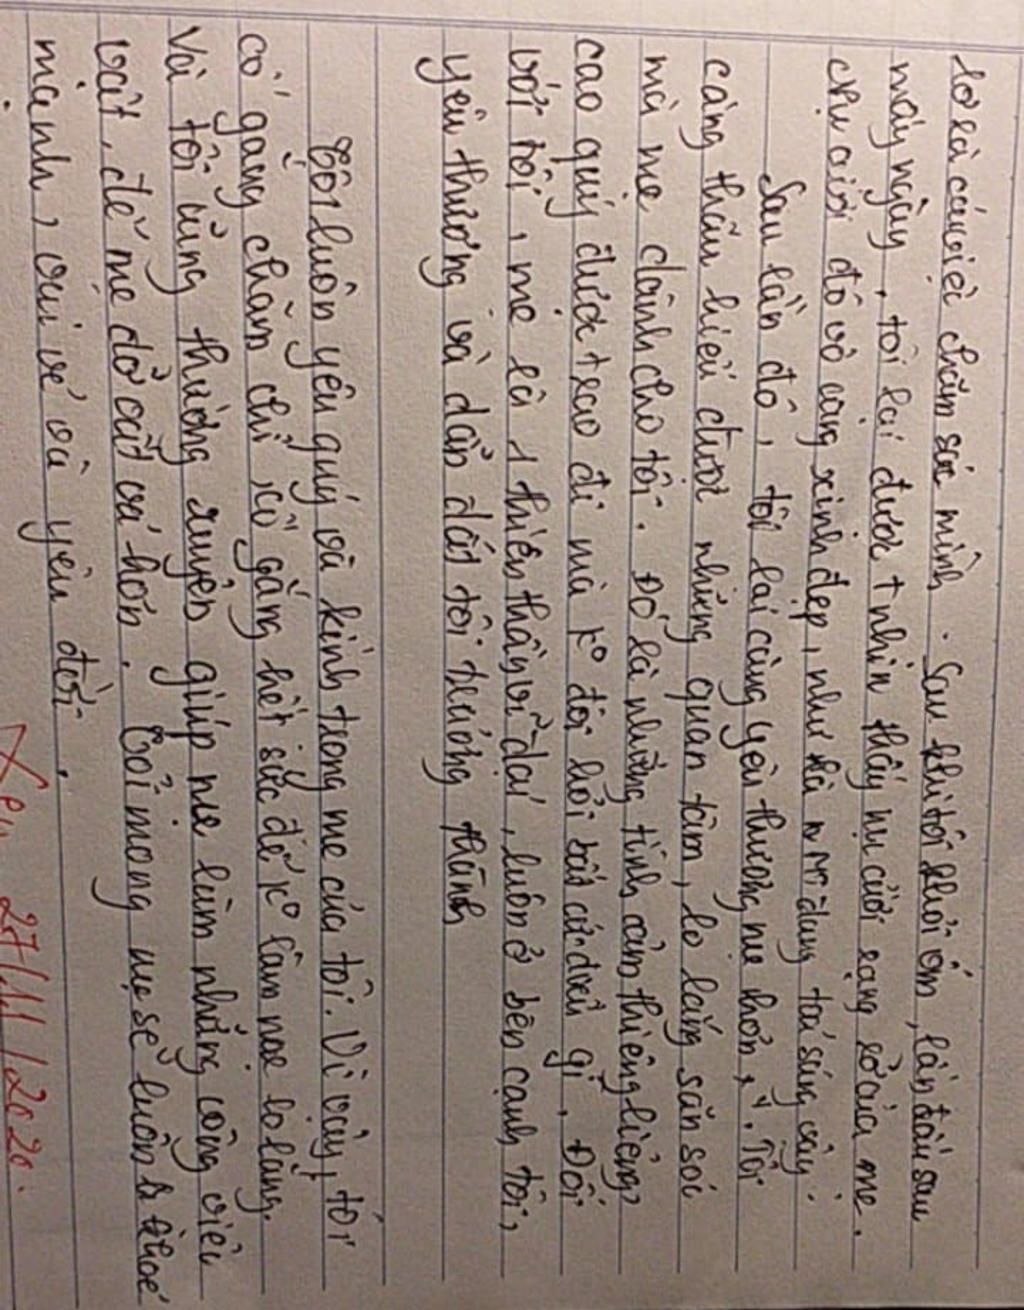 lơ là cả việc chăm sóc mình. Sau khi tôi khỏi ốm, lần đầu sau
mấy ngày, tôi lại được t nhìn thấy nụ cười rạng rỡ của mẹ.
nụ cười đó vô cùng xinh đẹp, như là đang toả sáng vậy.
Sau lần đó, tôi lại càng yêu thương mẹ hơn. Tôi
càng thấu hiểu được những quan tâm, lo lắng săn sóc
mà mẹ dành cho tôi. Đó là những tình cảm thiêng liêng,
cao quý được trao đi mà k° đòi hỏi bất cứ điều gì. Đối
với tôi, mẹ là 1 thiên thần vĩ đại, luôn ở bên cạnh tôi,
yêu thương và dẫn dắt tôi trưởng thành
Tôi luôn yêu quý và kính trọng mẹ của tôi. Vì vậy, tôi
cố gắng chăm chỉ, cố gắng hết sức để k° làm mẹ lo lắng.
Và tôi cũng thường xuyên giúp mẹ làm những công việc
vặt, để mẹ đỡ vất vả hơn. Tôi mong mẹ sẽ luôn khoẻ
mạnh, vui vẻ và yêu đời.
27/11/2020.